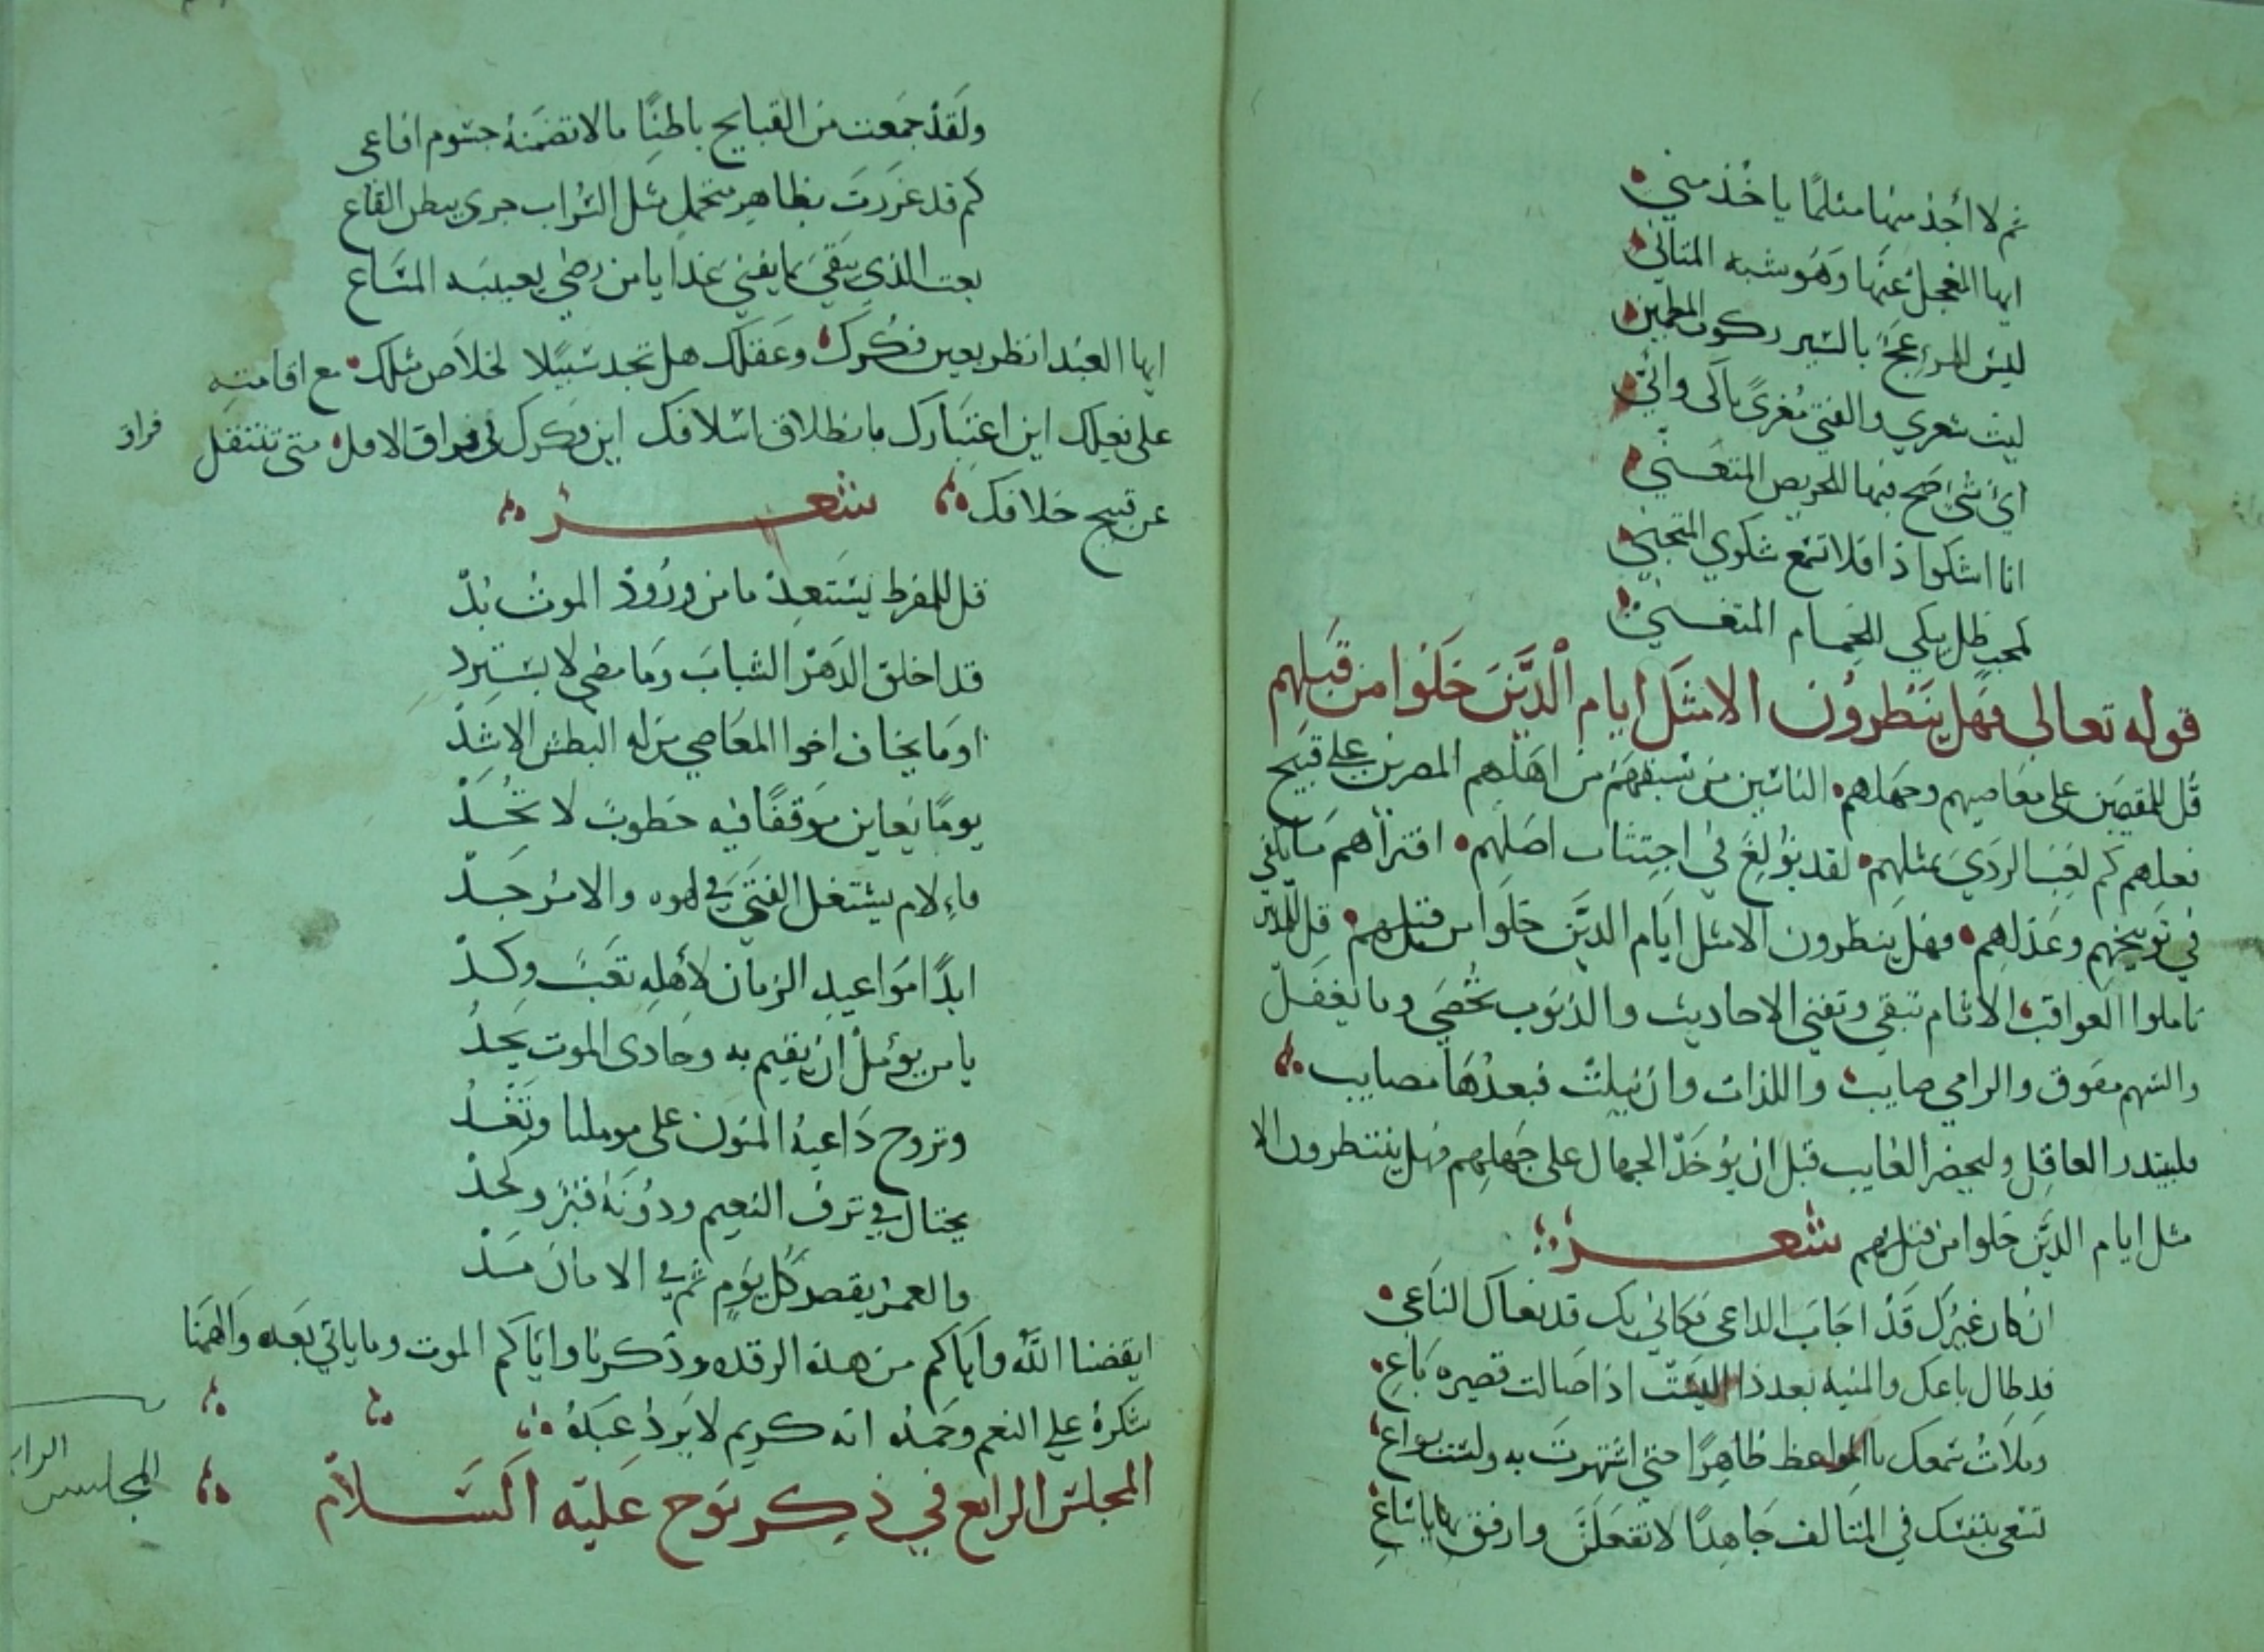 ثم لا أجد منها مثلما ياخذ مني
ايها المعجل عنها وهو شبه المتاني
ليس للمزعج بالسير ركون المطمين
ليث شعري والفتي مغري بالي واني
اي شي اضح فيها للحريص المتعني
انا اشكوا ذا فلا تمع شكوي المتجني
كمحب ظل يبكي للحمام المتغني
قوله تعالي فهل ينتظرون الا مثل ايام الذين خلوا من قبلهم
قل للمقصين علي معاصيهم وجهلهم الناسين من سبقهم من اهلهم المصرين علي قبيح
فعلهم كم لعب الردي بمثلهم لقد بولغ في اجتثاث اصلهم افتراهم ما يكفي
في توبيخهم وعذلهم فهل ينظرون الا مثل ايام الذين خلوا من قبلهم قل للذين
تاملوا العواقب الاثام تبقي وتفني الاحاديث والذنوب تحصي وما يغفل
والسهم مفوق والرامي صايب واللذات وان نيلت فبعدها مصايب
فليبتدر العاقل وليحضر الغايب قبل ان يؤخذ الجهال علي جهلهم فهل ينتظرون الا
مثل ايام الذين خلوا من قبلهم شعر
ان كان غيرك قد اجاب الداعي فكاني بك قد نعاك الناعي
قد طال باعك والمنيه بعد ذا اليست اذا صالت قصيره باع
وملات سمعك بالمواعظ ظاهرا حتي اشتهرت به ولست بواع
تسعي بنفسك في المتالف جاهدا لا تفعلن وارفق بها يا ساع
ولقد جمعت من القبايح باطنا ما لا تضمنه جسوم افاعي
كم قد غررت بظاهر متجمل مثل السراب جري ببطن القاع
بعت الذي يبقي بما يفني غدا يا من رضي بعيبه المتاع
ايها العبد انظر بعين فكرك وعقلك هل تجد سبيلا لخلاص مثلك مع اقامته
علي فعلك اين اعتبارك بانطلاق اسلافك اين فكرك في فراق الافك متي تنتقل
فراق
عن قبيح خلافك شعر
قل للمفرط يستعد ما من ورود الموث بد
قد اخلق الدهر الشباب وما مضي لا يسترد
او ما يخاف اخوا المعاصي من له البطش الاشد
يوما يعاين موقفا فيه خطوب لا تحد
فاءلام يشتغل الفتي في لهوه والامر جد
ابدا مواعيد الزمان لأهله تعب وكد
يا من يؤمل ان يقيم به وحادي الموت يحد
وتروح داعية المنون علي موملنا وتغد
يختال في ترف النعيم ودونه قبر ولحد
والعمر يقصر كل يوم ثم في الامان مد
ايقضنا الله واياكم من هذه الرقده وذكرنا واياكم الموت وما ياتي بعده والهمنا
شكره علي النعم وحمده انه كريم لا يرد عبده
المجلس الرابع في ذكر نوح عليه السلام
المجلس الرابع